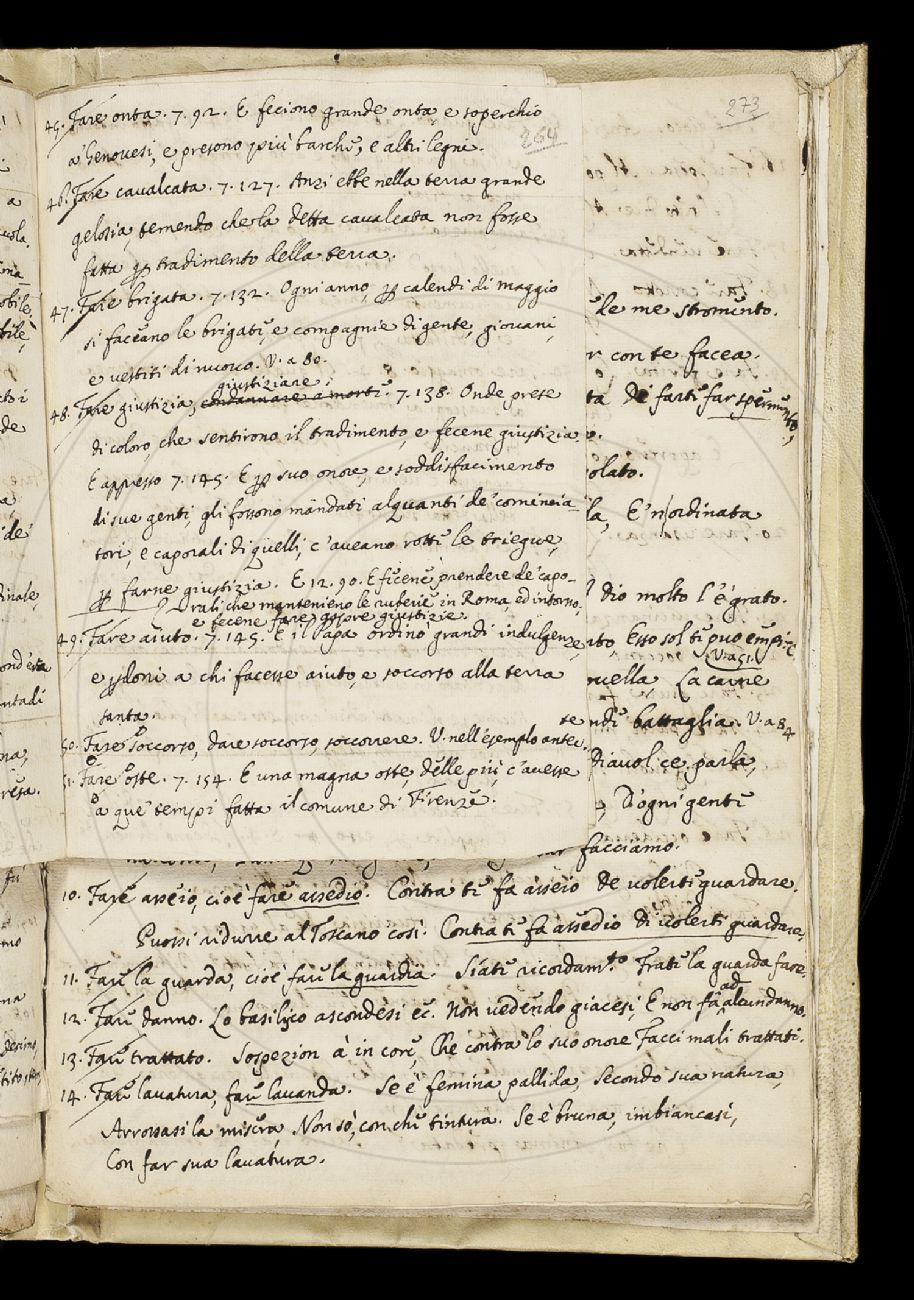 273
264
45. Fare onta. 7. 92. E feciono grande onta, e soperchio
a' Genovesi, e presono più barche, e altri legni.
46. Fare cavalcata. 7. 127. Anzi ebbe nella terra grande
gelosia, temendo che la detta cavalcata non fosse
fatta p tradimento della terra.
47. Fare brigata. 7. 132. Ogni anno, p calendi di maggio
si faceano le brigate, e compagnie di gente, giovani,
e vestiti di nuovo. V. a 80.
giustiziare.
48. Fare giustizia, condannare a morte. 7. 138. Onde prese
di coloro, che sentirono il tradimento, e fecene giustizia.
E appresso 7. 145. E p suo onore, e soddisfacimento
di sue genti, gli fossono mandati alquanti de' comincia-
tori, e caporali di quelli, c'aveano rotte le triegue,
p farne giustizia. E 12. 90. E fecene prendere de' capo-
rali, che mantenieno le ruberie in Roma, ed intorno,
e fecene fare aspre giustizie.
49. Fare aiuto. 7. 145. E il Papa ordinò grandi indulgenze,
e pdoni a chi facesse aiuto, e soccorso alla terra
santa.
50. Fare soccorso, dare soccorso, soccorrere. V. nell'esemplo antec.
se
51. Fare oste. 7. 154. E una magna oste, delle più, c'avesse
a que' tempi fatta il comune di Firenze.
le me stromento.
r con te facea.
ta di farti far spermento,
o.
olato.
la, E' n'ordinata
dio molto l'è grato.
ato, Esso sol ti puo empire
V. a 51.
uella, La carne
nde battaglia. V. a 84
Diavol ce parla,
, D'ogni gente
facciamo.
10. Fare asseio, cioè fare assedio. Contra te fa asseio De volerti guardare.
Puossi ridurre al Toscano così. Contra te fa assedio Di volerti guardare.
11. Fare la guarda, cioè fare la guardia. Siate ricordam.to Frate la guarda fare.
ad
12. Fare danno. Lo basilico ascondesi ec. Non vedendo giacesi, E non fa alcun danno.
13. Fare trattato. Sospezion à in core, Che contra lo suo onore Facci mali trattati.
14. Fare lavatura, fare lavanda. Se è femina pallida, Secondo sua natura,
Arrossasi la misera, Non sò, con che tintura. Se è bruna, imbiancasi,
Con far sua lavatura.